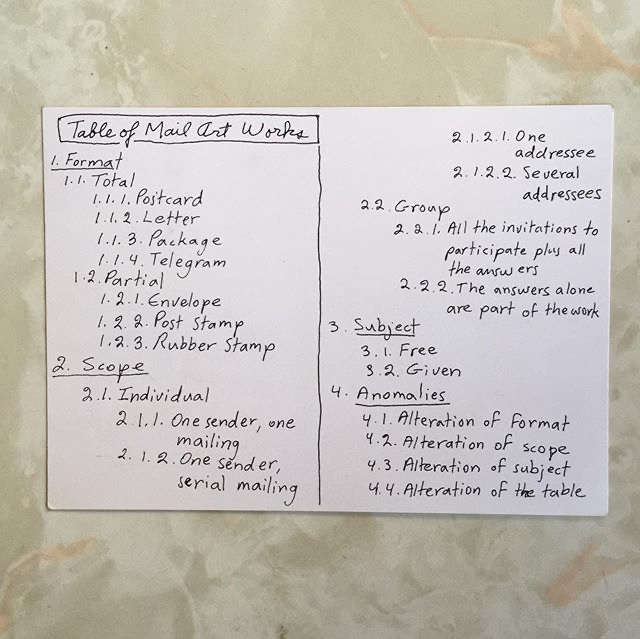 Table of Mail Art Works
1. Format
1.1. Total
1.1.1. Postcard
1.1.2. Letter
1.1.3. Package
1.1.4. Telegram
1.2. Partial
1.2.1. Envelope
1.2.2. Post Stamp
1.2.3. Rubber Stamp
2. Scope
2.1. Individual
2.1.1. One sender, one
mailing
2.1.2. One sender,
serial mailing
2.1.2.1. One
addressee
2.1.2.2. Several
addressees
2.2. Group
2.2.1. All the invitations to
participate plus all
the answers
2.2.2. The answers alone
are part of the work
3. Subject
3.1. Free
3.2. Given
4. Anomalies
4.1. Alteration of Format
4.2. Alteration of scope
4.3. Alteration of subject
4.4. Alteration of the table